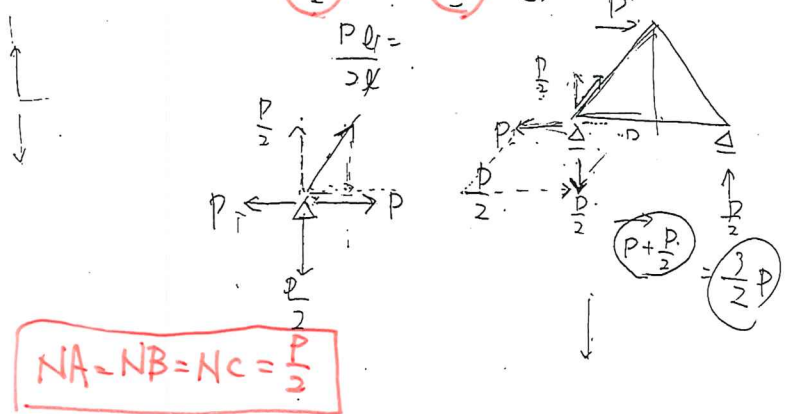 P
Pl/2l =
P/2
P
P
P/2
P/2
P
P/2
P/2
P/2
P + P/2 = 3/2 P
NA = NB = NC = P/2